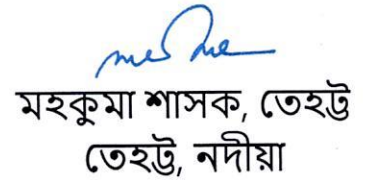 মহকুমা শাসক, তেহট্ট
তেহট্ট, নদীয়া